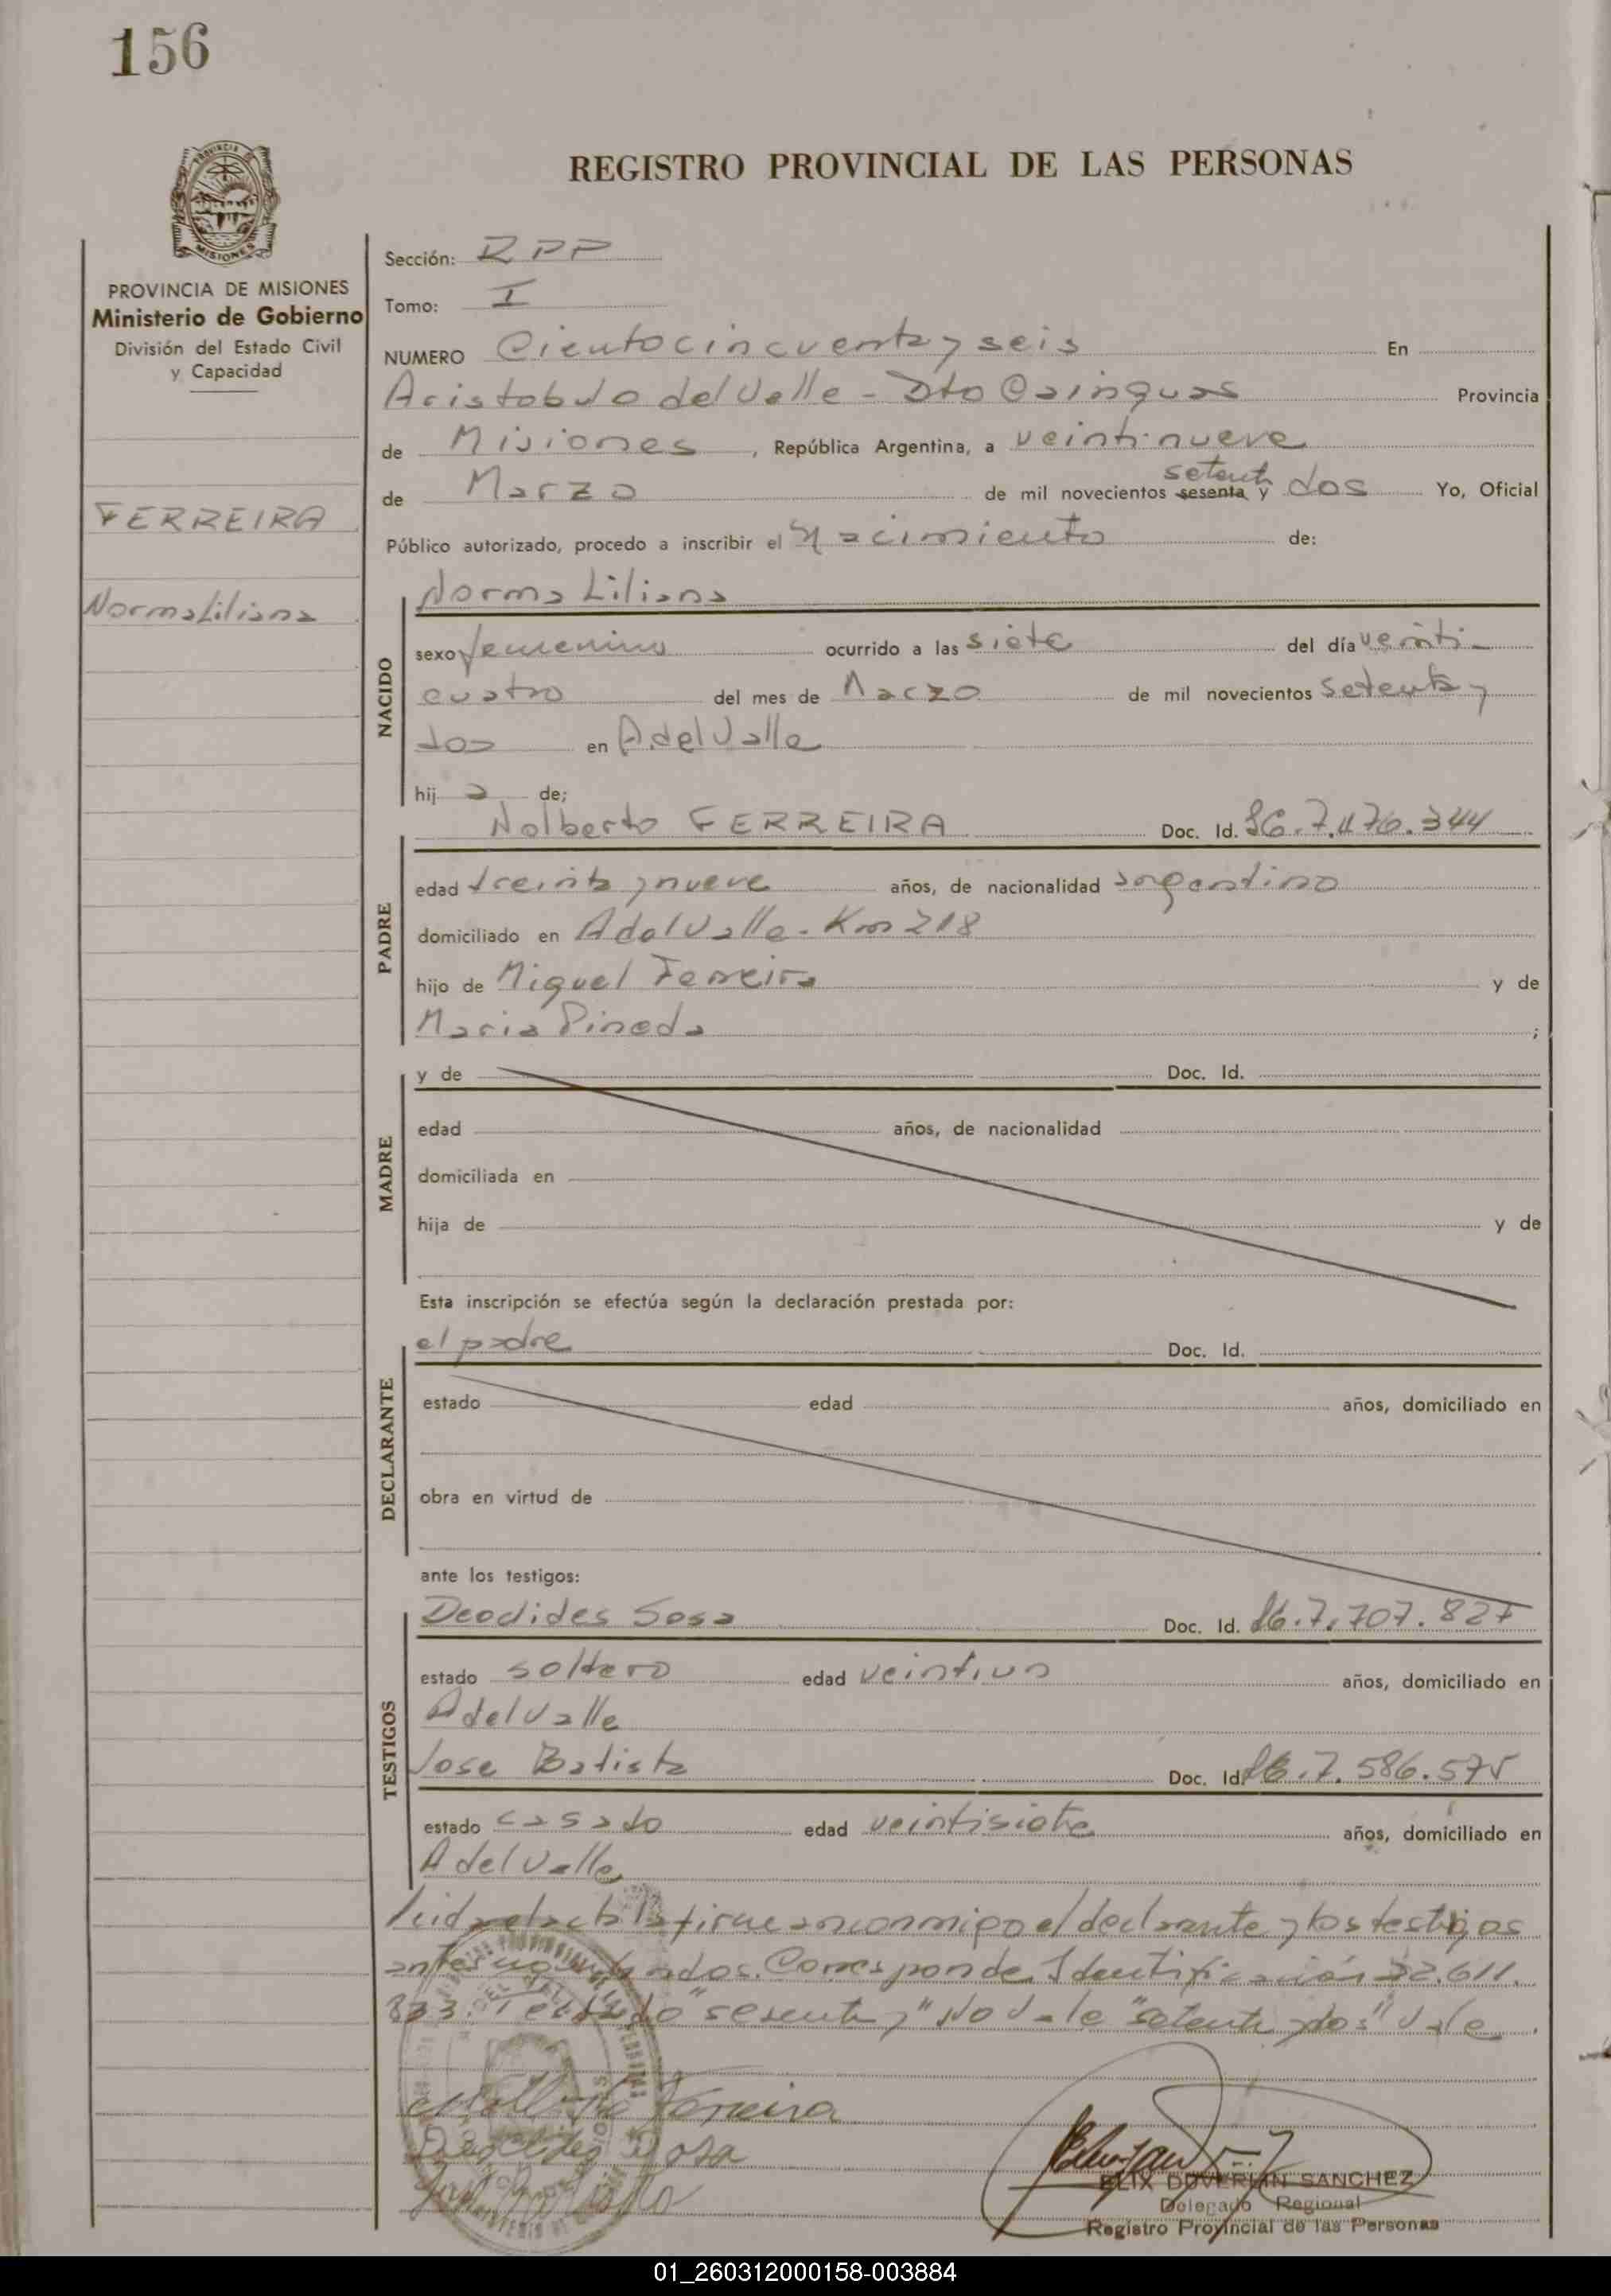 156
REGISTRO PROVINCIAL DE LAS PERSONAS
PROVINCIA DE
MISIONES
PROVINCIA DE MISIONES
Ministerio de Gobierno
División del Estado Civil
y Capacidad
FERREIRA
Norma Liliana
Sección: RPP
Tomo: I
NUMERO Ciento cincuenta y seis En
Aristobulo del Valle - Dto Cainguas Provincia
de Misiones, República Argentina, a veintinueve
setenta
de Marzo de mil novecientos sesenta y dos Yo, Oficial
Público autorizado, procedo a inscribir el Nacimiento de:
NACIDO
Norma Liliana
sexo femenino ocurrido a las siete del día veinti-
cuatro del mes de Marzo de mil novecientos setenta y
dos en A. del Valle
hij a de;
PADRE
Nolberto FERREIRA Doc. Id. 7.476.344
edad treinta y nueve años, de nacionalidad argentino
domiciliado en A del Valle - Km 218
hijo de Miguel Ferreira y de
Maria Pineda ;
MADRE
y de Doc. Id.
edad años, de nacionalidad
domiciliada en
hija de y de
Esta inscripción se efectúa según la declaración prestada por:
DECLARANTE
el padre Doc. Id.
estado edad años, domiciliado en
obra en virtud de
ante los testigos:
TESTIGOS
Deoclides Sosa Doc. Id. 7.707.827
estado soltero edad veintiun años, domiciliado en
A del Valle
Jose Batista Doc. Id. 7.586.575
estado casado edad veintisiete años, domiciliado en
A del Valle
leida el acta la firman conmigo el declarante y los testigos
antes nombrados. Corresponde Identificación 22.611.
Testado "sesenta y" No vale "setenta y dos" Vale
Ferreira
Deoclides Sosa
FELIX DUVERLIN SANCHEZ
Delegado Regional
Registro Provincial de las Personas
01_260312000158-003884